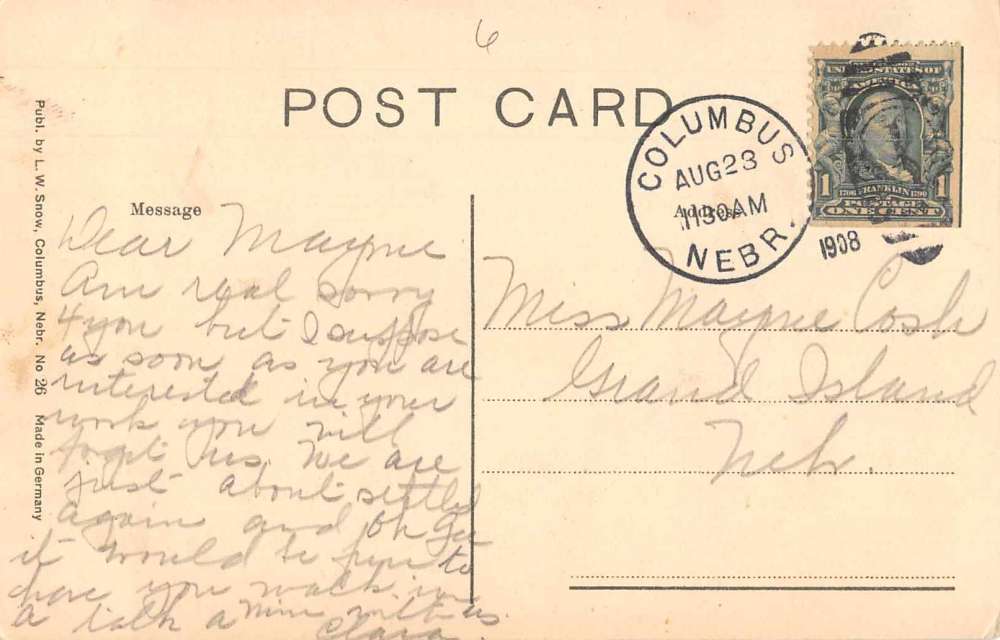 6
POST CARD
COLUMBUS
AUG 23
1130 AM
NEBR.
1908
UNITED STATES OF
AMERICA
1 FRANKLIN 1
POSTAGE
ONE CENT
Publ. by L. W. Snow, Columbus, Nebr. No 26 Made in Germany
Message
Dear Mayme
Am real sorry
4 you but I suppose
as soon as you are
interested in your
work you will
forget us. We are
just about settled
again and Oh Gee
it would be fun to
have you walk in
a talk a min with us.
Clara.
Address
Miss Mayme Cosh
Grand Island
Nebr.